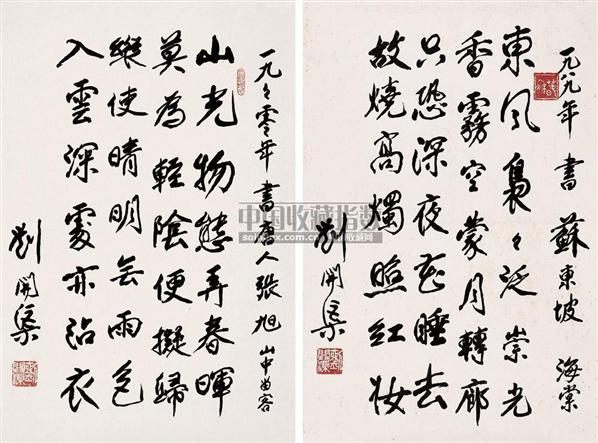 一九八九年 書 蘇東坡 海棠
東風裊々泛崇光
香霧空蒙月轉廊
只恐深夜花睡去
故燒高燭照紅妆
劉開渠
一九々零年 書唐人張旭 山中留客
山光物態弄春暉
莫為輕陰便擬歸
縱使晴明无雨色
入雲深處亦沾衣
劉開渠
中国收藏指数